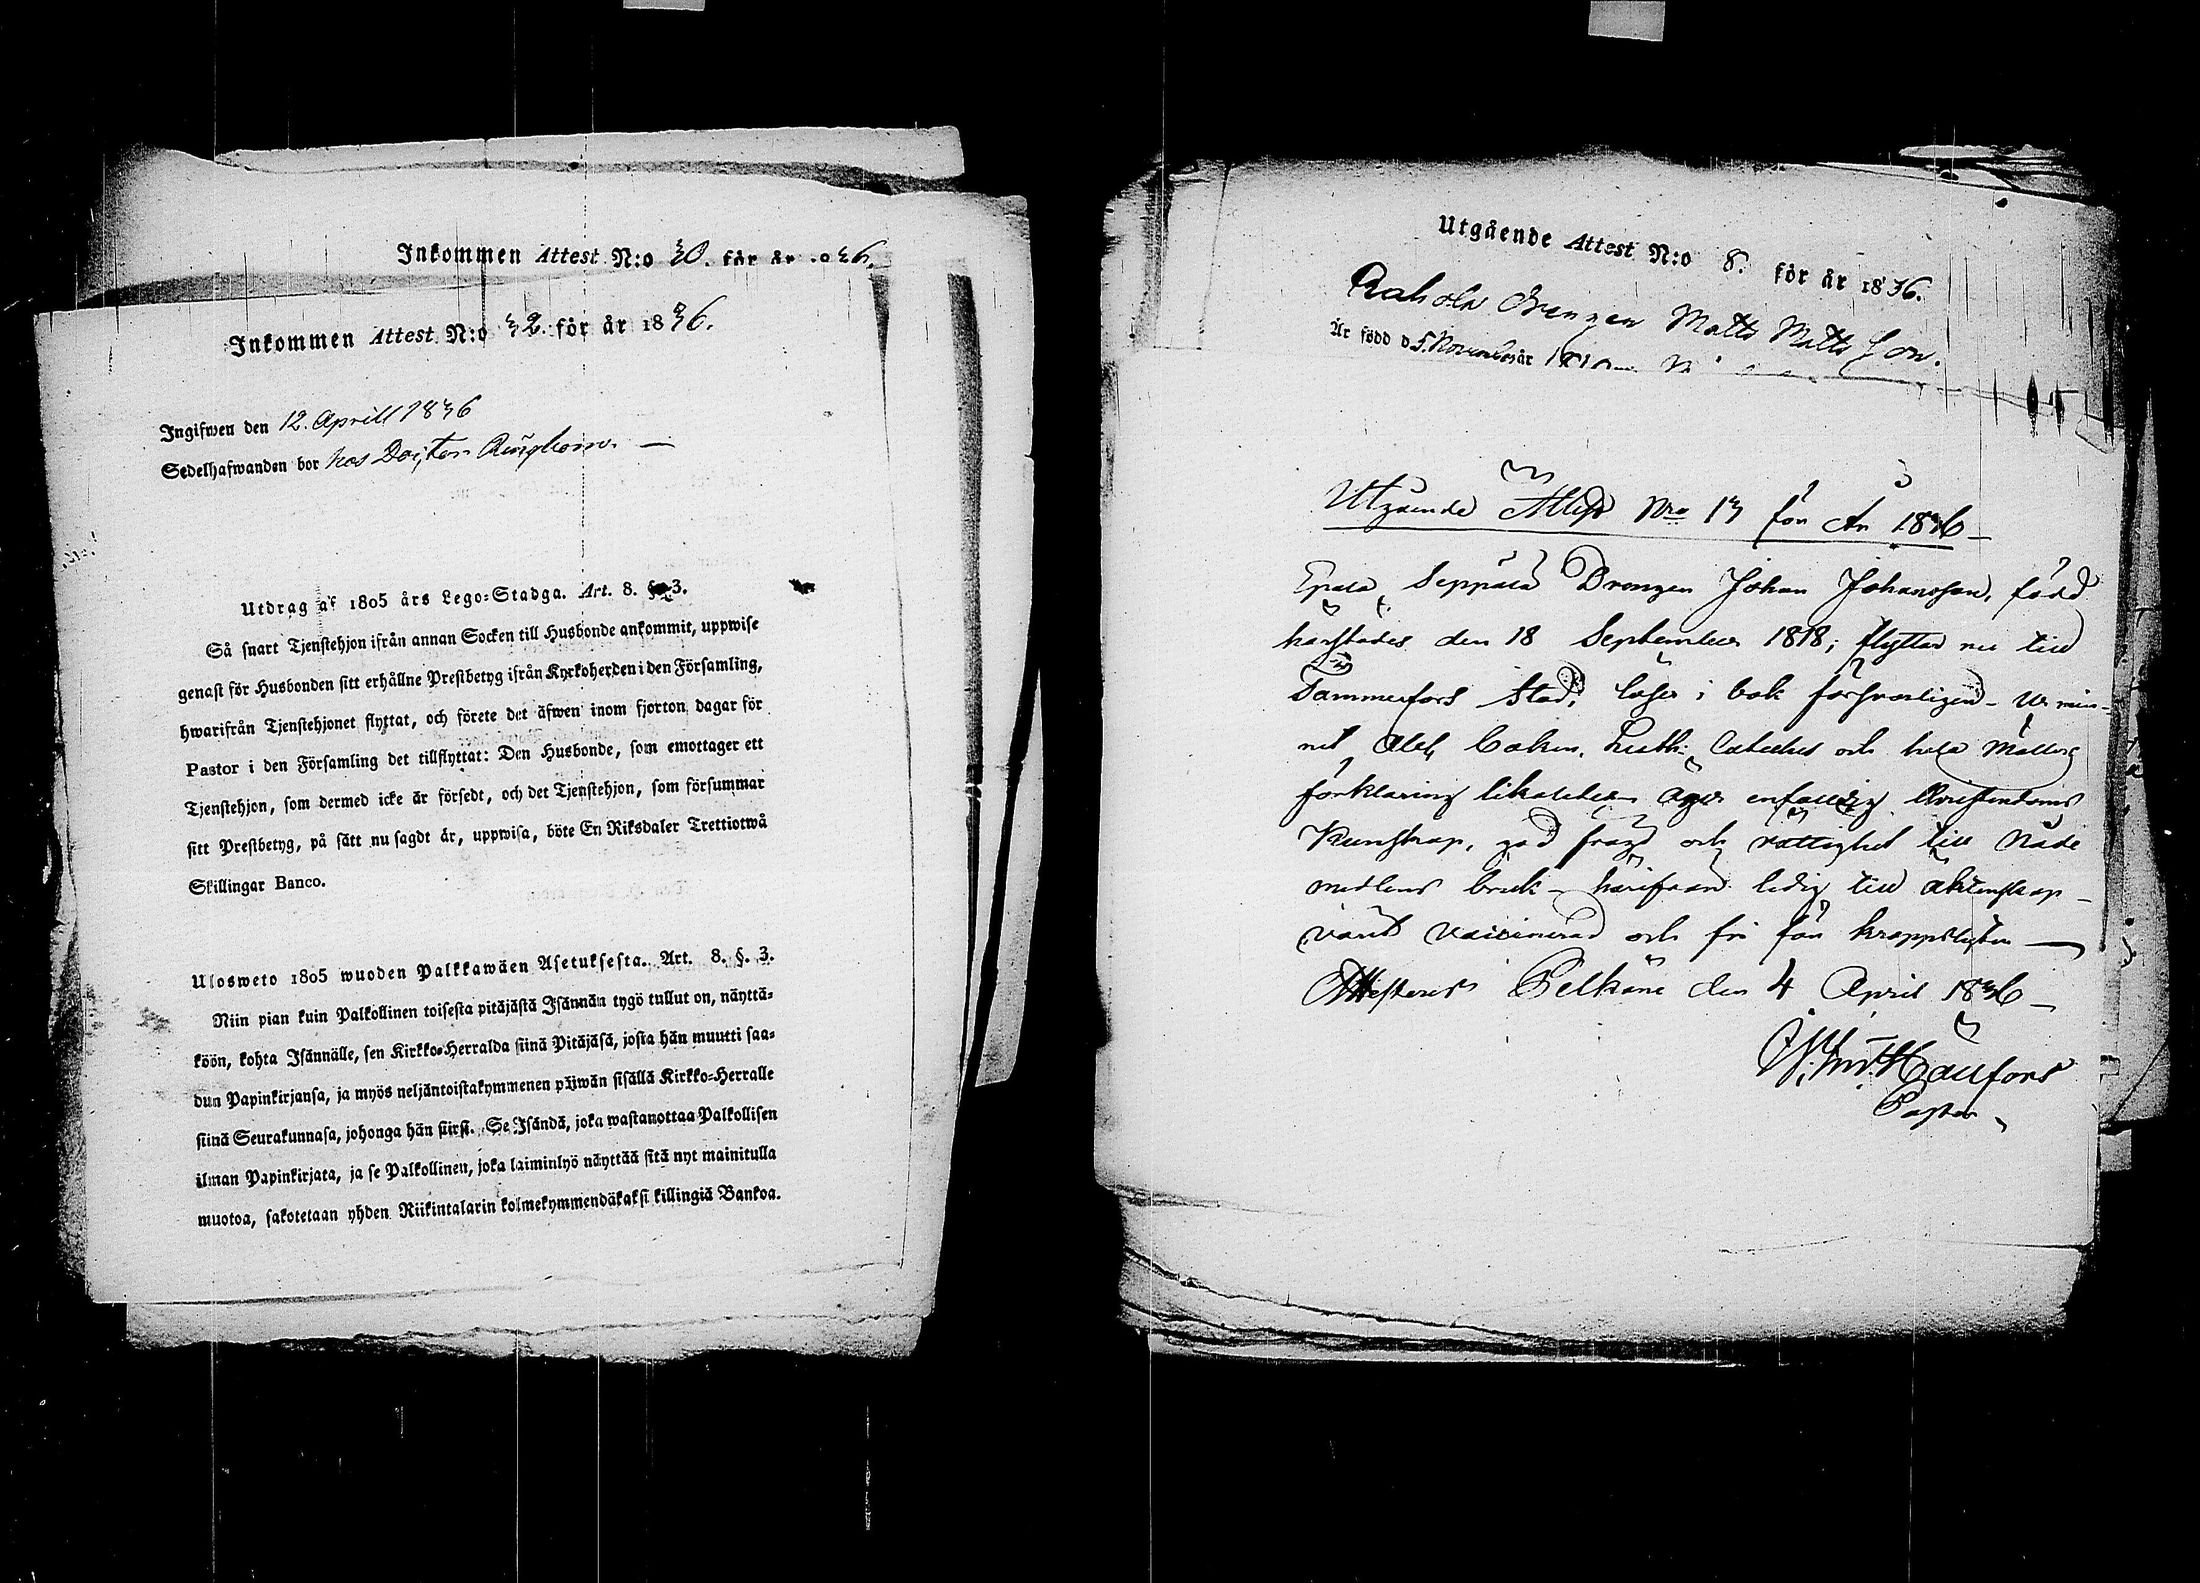 Inkommen Attest N:o 30. för år 1836.
Inkommen Attest N:o 32. för år 1836.
Ingifwen den 12. Aprill 1836
Sedelhafwanden bor hos Doctor Ringbom. —
Utdrag af 1805 års Lego-Stadga. Art. 8. §. 3.
Så snart Tjenstehjon ifrån annan Socken till Husbonde ankommit, uppwise
genast för Husbonden sitt erhållne Prestbetyg ifrån Kyrkoherden i den Församling,
hwarifrån Tjenstehjonet flyttat, och förete det äfwen inom fjorton dagar för
Pastor i den Församling det tillflyttat: Den Husbonde, som emottager ett
Tjenstehjon, som dermed icke är försedt, och det Tjenstehjon, som försummar
sitt Prestbetyg, på sätt nu sagdt är, uppwisa, böte En Riksdaler Trettiotwå
Skillingar Banco.
Ulosweto 1805 wuoden Palkkawäen Asetuksesta. Art. 8. §. 3.
Niin pian kuin Palkollinen toisesta pitäjästä Isännän tygö tullut on, näyttä-
köön, kohta Isännälle, sen Kirkko-Herralda siinä Pitäjäsä, josta hän muutti saa-
dun Papinkirjansa, ja myös neljäntoistakymmenen päiwän sisällä Kirkko-Herralle
siinä Seurakunnasa, johonga hän siirsi. Se Isändä, joka wastanottaa Palkollisen
ilman Papinkirjata, ja se Palkollinen, joka laiminlyö näyttää sitä nyt mainitulla
muotoa, sakotetaan yhden Riikintalarin kolmekymmendäkaksi killingiä Bankoa.
Utgående Attest N:o 8. för år 1836.
Rahola Drengen Matts Matts Son.
Är född d. 5. November år
Utgående Attest Nro 13 för År 1836 —
Epaala Seppälä Drengen Johan Johansson, född
härstädes den 18 September 1818; flyttar nu till
Tammerfors Stad, läser i bok försvarligen - Ur min-
net Abc boken, Luth: Cateches och hela
förklaring likaledes äger enfaldig Christendoms
Kunskap, god frägd och rättighet till Nåde
medlens bruk - härifrån ledig till äktenskap -
varit vaccinerad och fri från kroppslyten —
Attesterar Pelkäne den 4 April 1836 —
Pastor